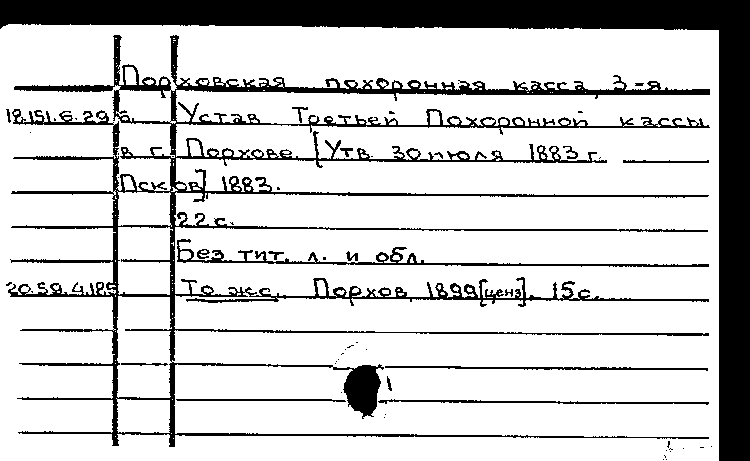 Порховская похоронная касса, 3-я.
18.151.6.29 б. Устав Третьей Похоронной кассы
в г. Порхове. [Утв. 30 июля 1883 г.
Псков] 1883.
22 с.
Без тит. л. и обл.
20.59.4.185. То же. Порхов, 1899 [ценз]. 15 с.